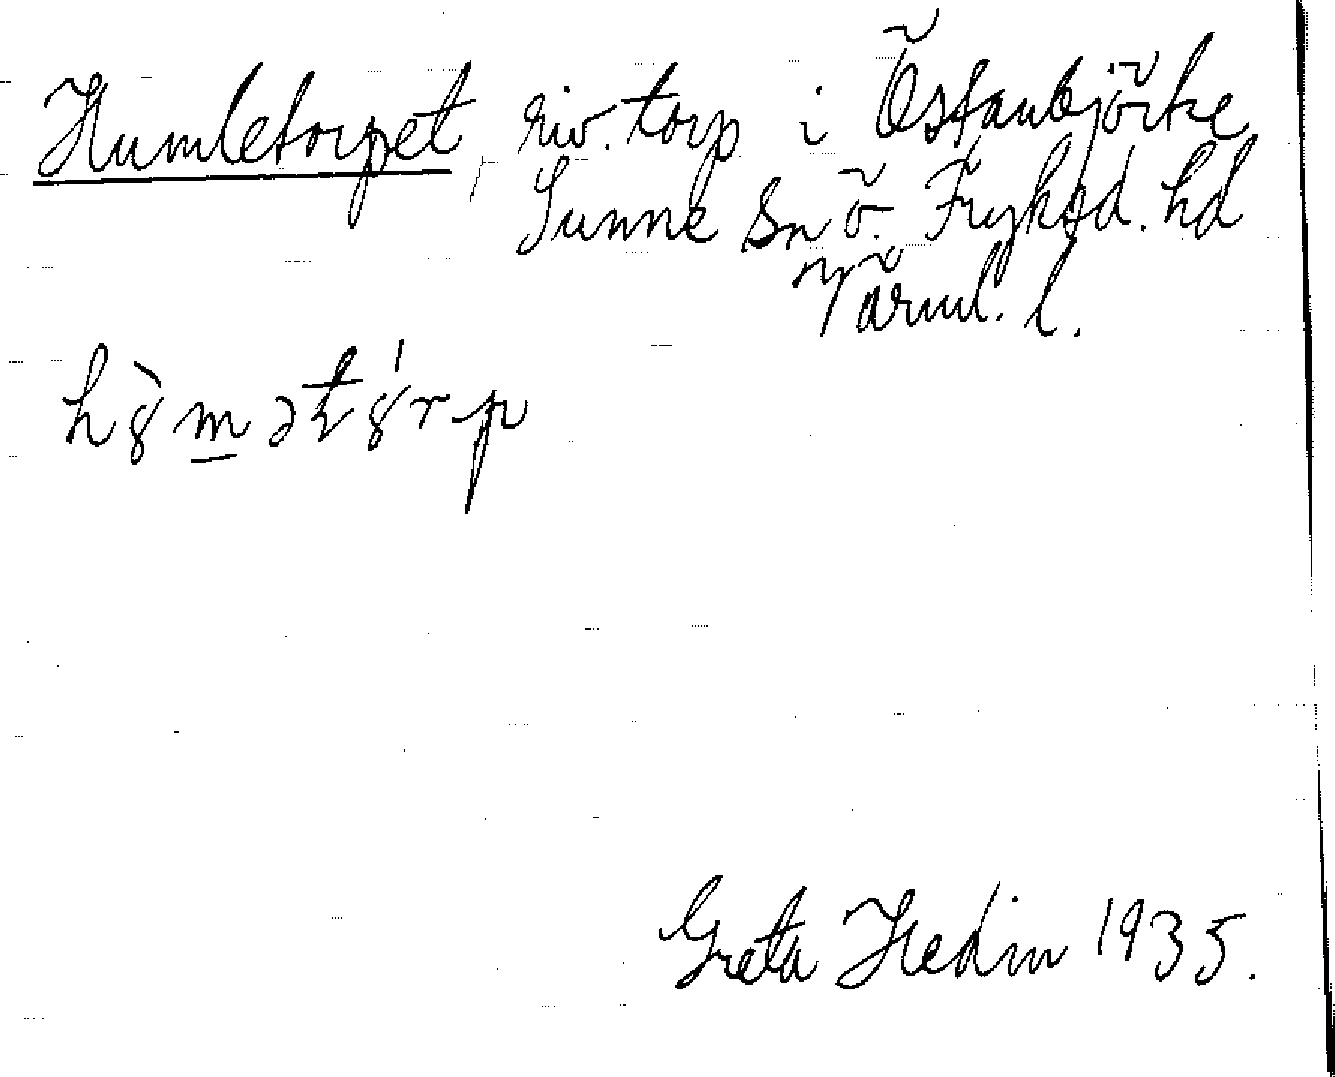 Humletorpet, riv. torp i Östanbjörke
Sunne Sn Ö. Fryksd. hd
Värml. l.
hȣ̀m̲ətȣ́rp
Greta Hedin 1935.